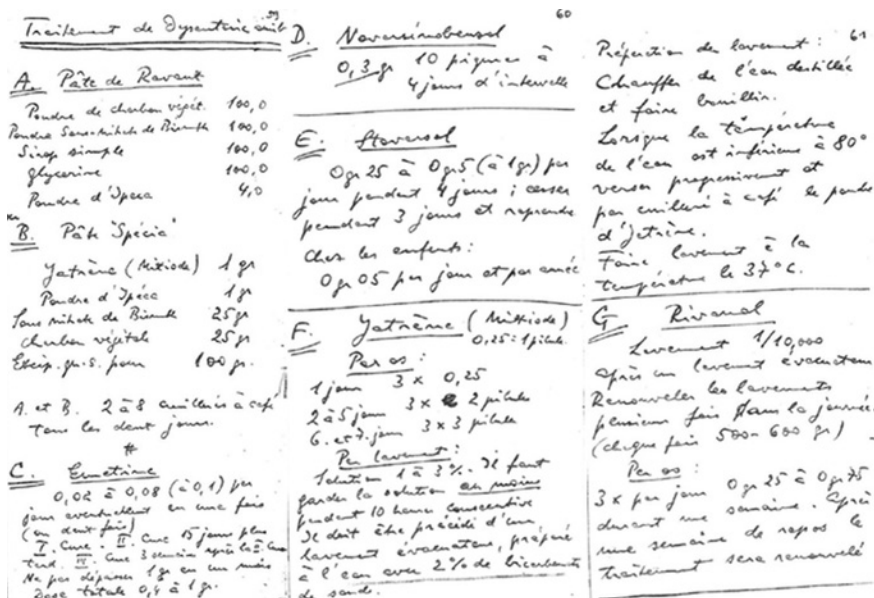 59
Traitement de Dysenterie amib
A. Pâte de Ravaut
Poudre de charbon végét. 100,0
Poudre Sous-nitrate de Bismuth 100,0
Sirop simple 100,0
glycerine 100,0
Poudre d'Ipeca 4,0
B. Pâte "Spécia"
Yatrène (Mixiode) 1 gr
Poudre d'Ipéca 1 gr
Sous nitrate de Bismuth 25 gr
charbon végétale 25 gr
Excip. q.s. pour 100 gr.
A. et B. 2 à 8 cuillerées à café
tous les deux jours.
#
C. Emétine
0,02 à 0,08 (à 0,1) par
jour eventuellement en une fois
(ou deux fois)
I. Cure. II. Cure 15 jours plus
tard. III. Cure 3 semaines après la II. Cure
Ne pas dépasser 1 gr en un mois
Dose totale 0,4 à 1 gr.
60
D. Novarsénobensol
0,3 gr 10 piqures à
4 jours d'intervalle
E. Stovarsol
0gr 25 à 0gr5 (à 1gr) par
jour pendant 4 jours ; cesser
pendant 3 jours et reprendre
chez les enfants :
0gr 05 par jour et par année
F. Yatrène (Mixiode)
0,25 : 1 pilule.
Per os :
1 jour 3 x 0,25
2 à 5 jour 3 x 2 pilules
6. et 7. jour 3 x 3 pilules
Per lavement :
Solution 1 à 3%. Il faut
garder la solution au moins
pendant 10 heures consecutive
Il doit être précédé d'un
lavement évacuateur, préparé
à l'eau avec 2% de bicarbonate
de soude.
61
Préparation des lavement :
Chauffer de l'eau destillée
et faire bouillir.
Lorsque la température
de l'eau est inférieure à 80°
verser progressivement et
par cuillerée à café la poudre
d'Jatrène.
Faire lavement à la
température le 37°C.
G Rivanol
Lavement 1/10,000
après un lavement évacuateur
Renouveler les lavements
plusieurs fois dans la journée.
(chaque fois 500-600 gr)
Per os :
3 x par jour 0gr 25 à 0gr 75
durant une semaine. Après
une semaine de repos le
traitement sera renouvelé